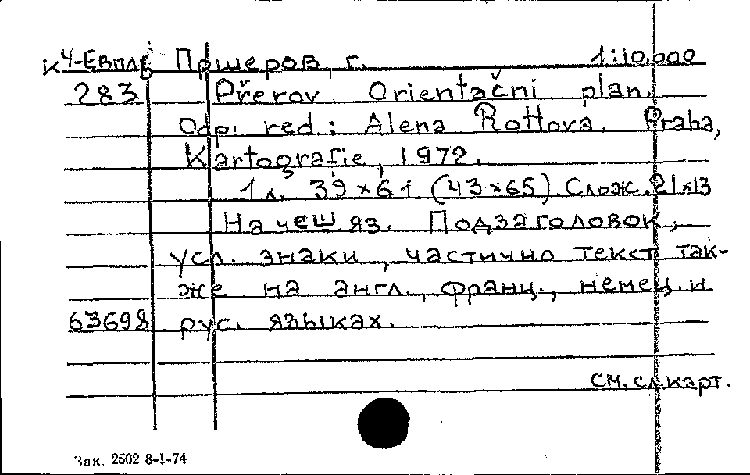 К4-Евп/Е Пршеров, г. 1:10.000
283 Přerov Orientační plan.
Odp. red.: Alena Rottova. Praha,
Kartografie, 1972.
1 л. 39×61 (43×65) Слож. 21×13
На чеш яз. Подзаголовок,
усл. знаки, частично текст так-
же на англ., франц., немец. и
63698 рус. языках.
см. сл. карт.
Зак. 2502 8-1-74